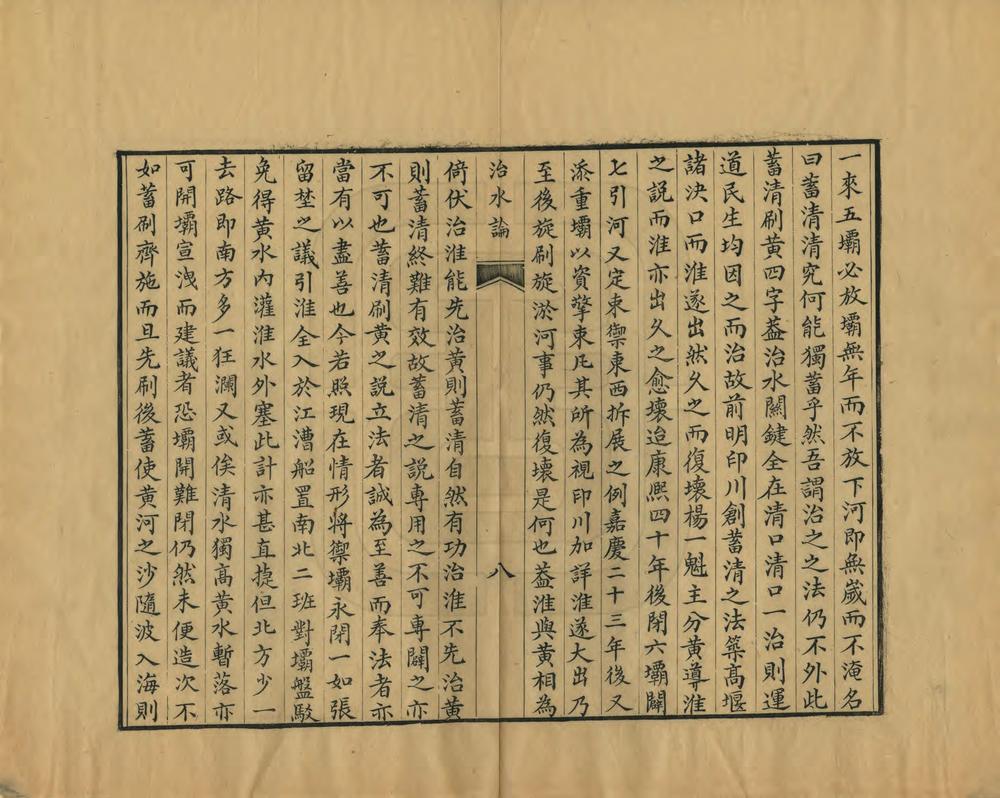 一來五壩必放壩無年而不放下河即無歲而不淹名
曰蓄清清究何能獨蓄乎然吾謂治之之法仍不外此
蓄清刷黃四字葢治水關鍵全在清口清口一治則運
道民生均因之而治故前明印川創蓄清之法築高堰
諸決口而淮遂出然久之而復壞楊一魁主分黃導淮
之説而淮亦出久之愈壞迨康熙四十年後閉六壩闢
七引河又定東禦東西拆展之例嘉慶二十三年後又
添重壩以資擎束凡其所為視印川加詳淮遂大出乃
至後旋刷旋淤河事仍然復壞是何也葢淮與黃相為
治水論
八
倚伏治淮能先治黃則蓄清自然有功治淮不先治黃
則蓄清終難有效故蓄清之説專用之不可專闢之亦
不可也蓄清刷黃之説立法者誠為至善而奉法者亦
當有以盡善也今若照現在情形將禦壩永閉一如張
留埜之議引淮全入於江漕船置南北二班對壩盤駁
免得黃水內灌淮水外塞此計亦甚直捷但北方少一
去路即南方多一狂瀾又或俟清水獨高黃水暫落亦
可開壩宣洩而建議者恐壩開難閉仍然未便造次不
如蓄刷齊施而且先刷後蓄使黃河之沙隨波入海則